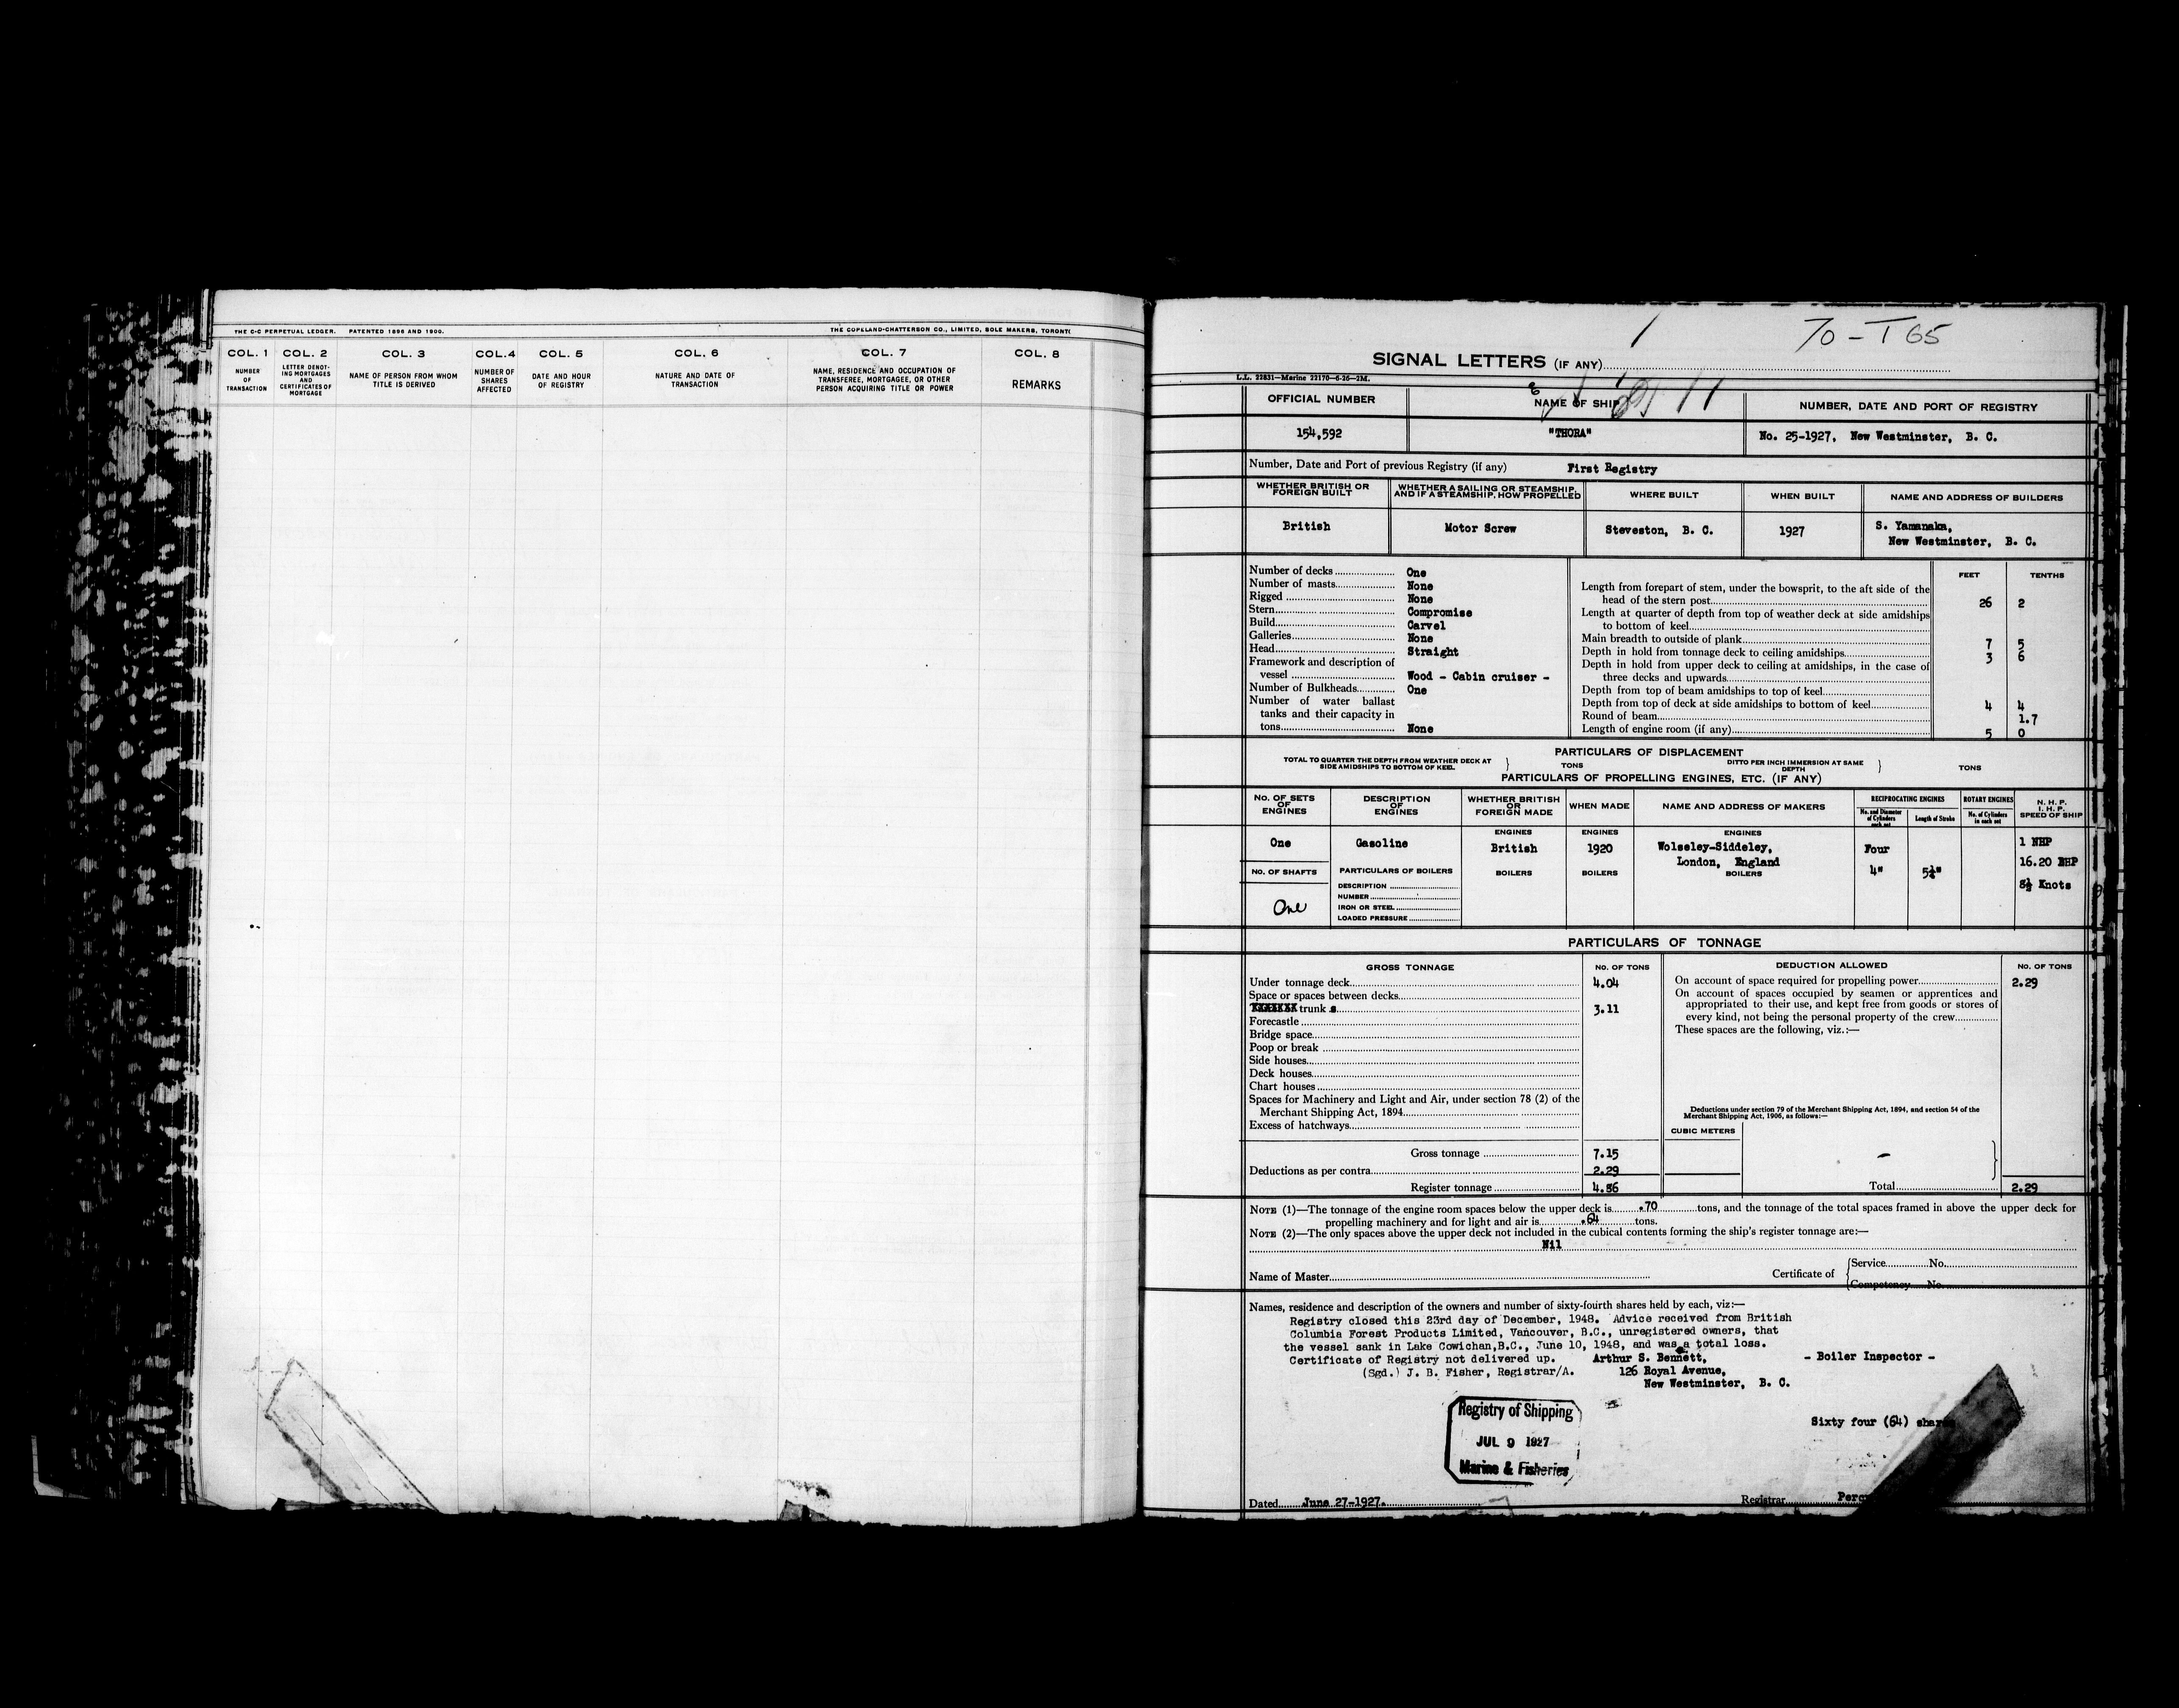 THE C-C PERPETUAL LEDGER. PATENTED 1896 AND 1900. THE COPELAND-CHATTERSON CO., LIMITED, SOLE MAKERS, TORONTO
COL. 1 COL. 2 COL. 3 COL. 4 COL. 5 COL. 6 COL. 7 COL. 8
NUMBER OF TRANSACTION
LETTER DENOTING MORTGAGES AND CERTIFICATES OF MORTGAGE
NAME OF PERSON FROM WHOM TITLE IS DERIVED
NUMBER OF SHARES AFFECTED
DATE AND HOUR OF REGISTRY
NATURE AND DATE OF TRANSACTION
NAME, RESIDENCE AND OCCUPATION OF TRANSFEREE, MORTGAGEE, OR OTHER PERSON ACQUIRING TITLE OR POWER
REMARKS
70-T65
SIGNAL LETTERS (IF ANY)
L.L. 22831—Marine 22170—6-26—2M.
OFFICIAL NUMBER NAME OF SHIP NUMBER, DATE AND PORT OF REGISTRY
154,592 "THORA" No. 25-1927, New Westminster, B. C.
Number, Date and Port of previous Registry (if any) First Registry
WHETHER BRITISH OR FOREIGN BUILT
WHETHER A SAILING OR STEAMSHIP, AND IF A STEAMSHIP, HOW PROPELLED
WHERE BUILT WHEN BUILT NAME AND ADDRESS OF BUILDERS
British Motor Screw Steveston, B. C. 1927 S. Yamanaka,
New Westminster, B. C.
Number of decks One
Number of masts None
Rigged None
Stern Compromise
Build Carvel
Galleries None
Head Straight
Framework and description of
vessel Wood - Cabin cruiser -
Number of Bulkheads One
Number of water ballast
tanks and their capacity in
tons None
FEET TENTHS
Length from forepart of stem, under the bowsprit, to the aft side of the
head of the stern post 26 2
Length at quarter of depth from top of weather deck at side amidships
to bottom of keel
Main breadth to outside of plank 7 5
Depth in hold from tonnage deck to ceiling amidships 3 6
Depth in hold from upper deck to ceiling at amidships, in the case of
three decks and upwards
Depth from top of beam amidships to top of keel
Depth from top of deck at side amidships to bottom of keel 4 4
Round of beam 1.7
Length of engine room (if any) 5 0
PARTICULARS OF DISPLACEMENT
TOTAL TO QUARTER THE DEPTH FROM WEATHER DECK AT SIDE AMIDSHIPS TO BOTTOM OF KEEL } TONS DITTO PER INCH IMMERSION AT SAME DEPTH } TONS
PARTICULARS OF PROPELLING ENGINES, ETC. (IF ANY)
No. OF SETS OF ENGINES
DESCRIPTION OF ENGINES
WHETHER BRITISH OR FOREIGN MADE
WHEN MADE
NAME AND ADDRESS OF MAKERS
RECIPROCATING ENGINES
No. and Diameter of Cylinders each set
Length of Stroke
ROTARY ENGINES
No. of Cylinders in each set
N. H. P.
I. H. P.
SPEED OF SHIP
ENGINES ENGINES ENGINES
One Gasoline British 1920 Wolseley-Siddeley, Four 1 NHP
London, England 16.20 BHP
NO. OF SHAFTS PARTICULARS OF BOILERS BOILERS BOILERS BOILERS 4"
8½ Knots
DESCRIPTION
NUMBER
One IRON OR STEEL
LOADED PRESSURE
PARTICULARS OF TONNAGE
GROSS TONNAGE NO. OF TONS DEDUCTION ALLOWED NO. OF TONS
Under tonnage deck 4.04
Space or spaces between decks
trunk s 3.11
Forecastle
Bridge space
Poop or break
Side houses
Deck houses
Chart houses
Spaces for Machinery and Light and Air, under section 78 (2) of the
Merchant Shipping Act, 1894
Excess of hatchways
Gross tonnage 7.15
Deductions as per contra 2.29
Register tonnage 4.86
On account of space required for propelling power 2.29
On account of spaces occupied by seamen or apprentices and
appropriated to their use, and kept free from goods or stores of
every kind, not being the personal property of the crew
These spaces are the following, viz.:—
Deductions under section 79 of the Merchant Shipping Act, 1894, and section 54 of the
Merchant Shipping Act, 1906, as follows:—
CUBIC METERS
-
Total 2.29
NOTE (1)—The tonnage of the engine room spaces below the upper deck is .70 tons, and the tonnage of the total spaces framed in above the upper deck for
propelling machinery and for light and air is .64 tons.
NOTE (2)—The only spaces above the upper deck not included in the cubical contents forming the ship's register tonnage are:—
Nil
Name of Master Certificate of { Service No.
Competency No.
Names, residence and description of the owners and number of sixty-fourth shares held by each, viz:—
Registry closed this 23rd day of December, 1948. Advice received from British
Columbia Forest Products Limited, Vancouver, B.C., unregistered owners, that
the vessel sank in Lake Cowichan,B.C., June 10, 1948, and was a total loss.
Certificate of Registry not delivered up. Arthur S. Bennett, - Boiler Inspector -
(Sgd.) J. B. Fisher, Registrar/A. 126 Royal Avenue,
New Westminster, B. C.
Registry of Shipping
JUL 9 1927
Marine & Fisheries
Sixty four (64)
Dated June 27-1927. Registrar